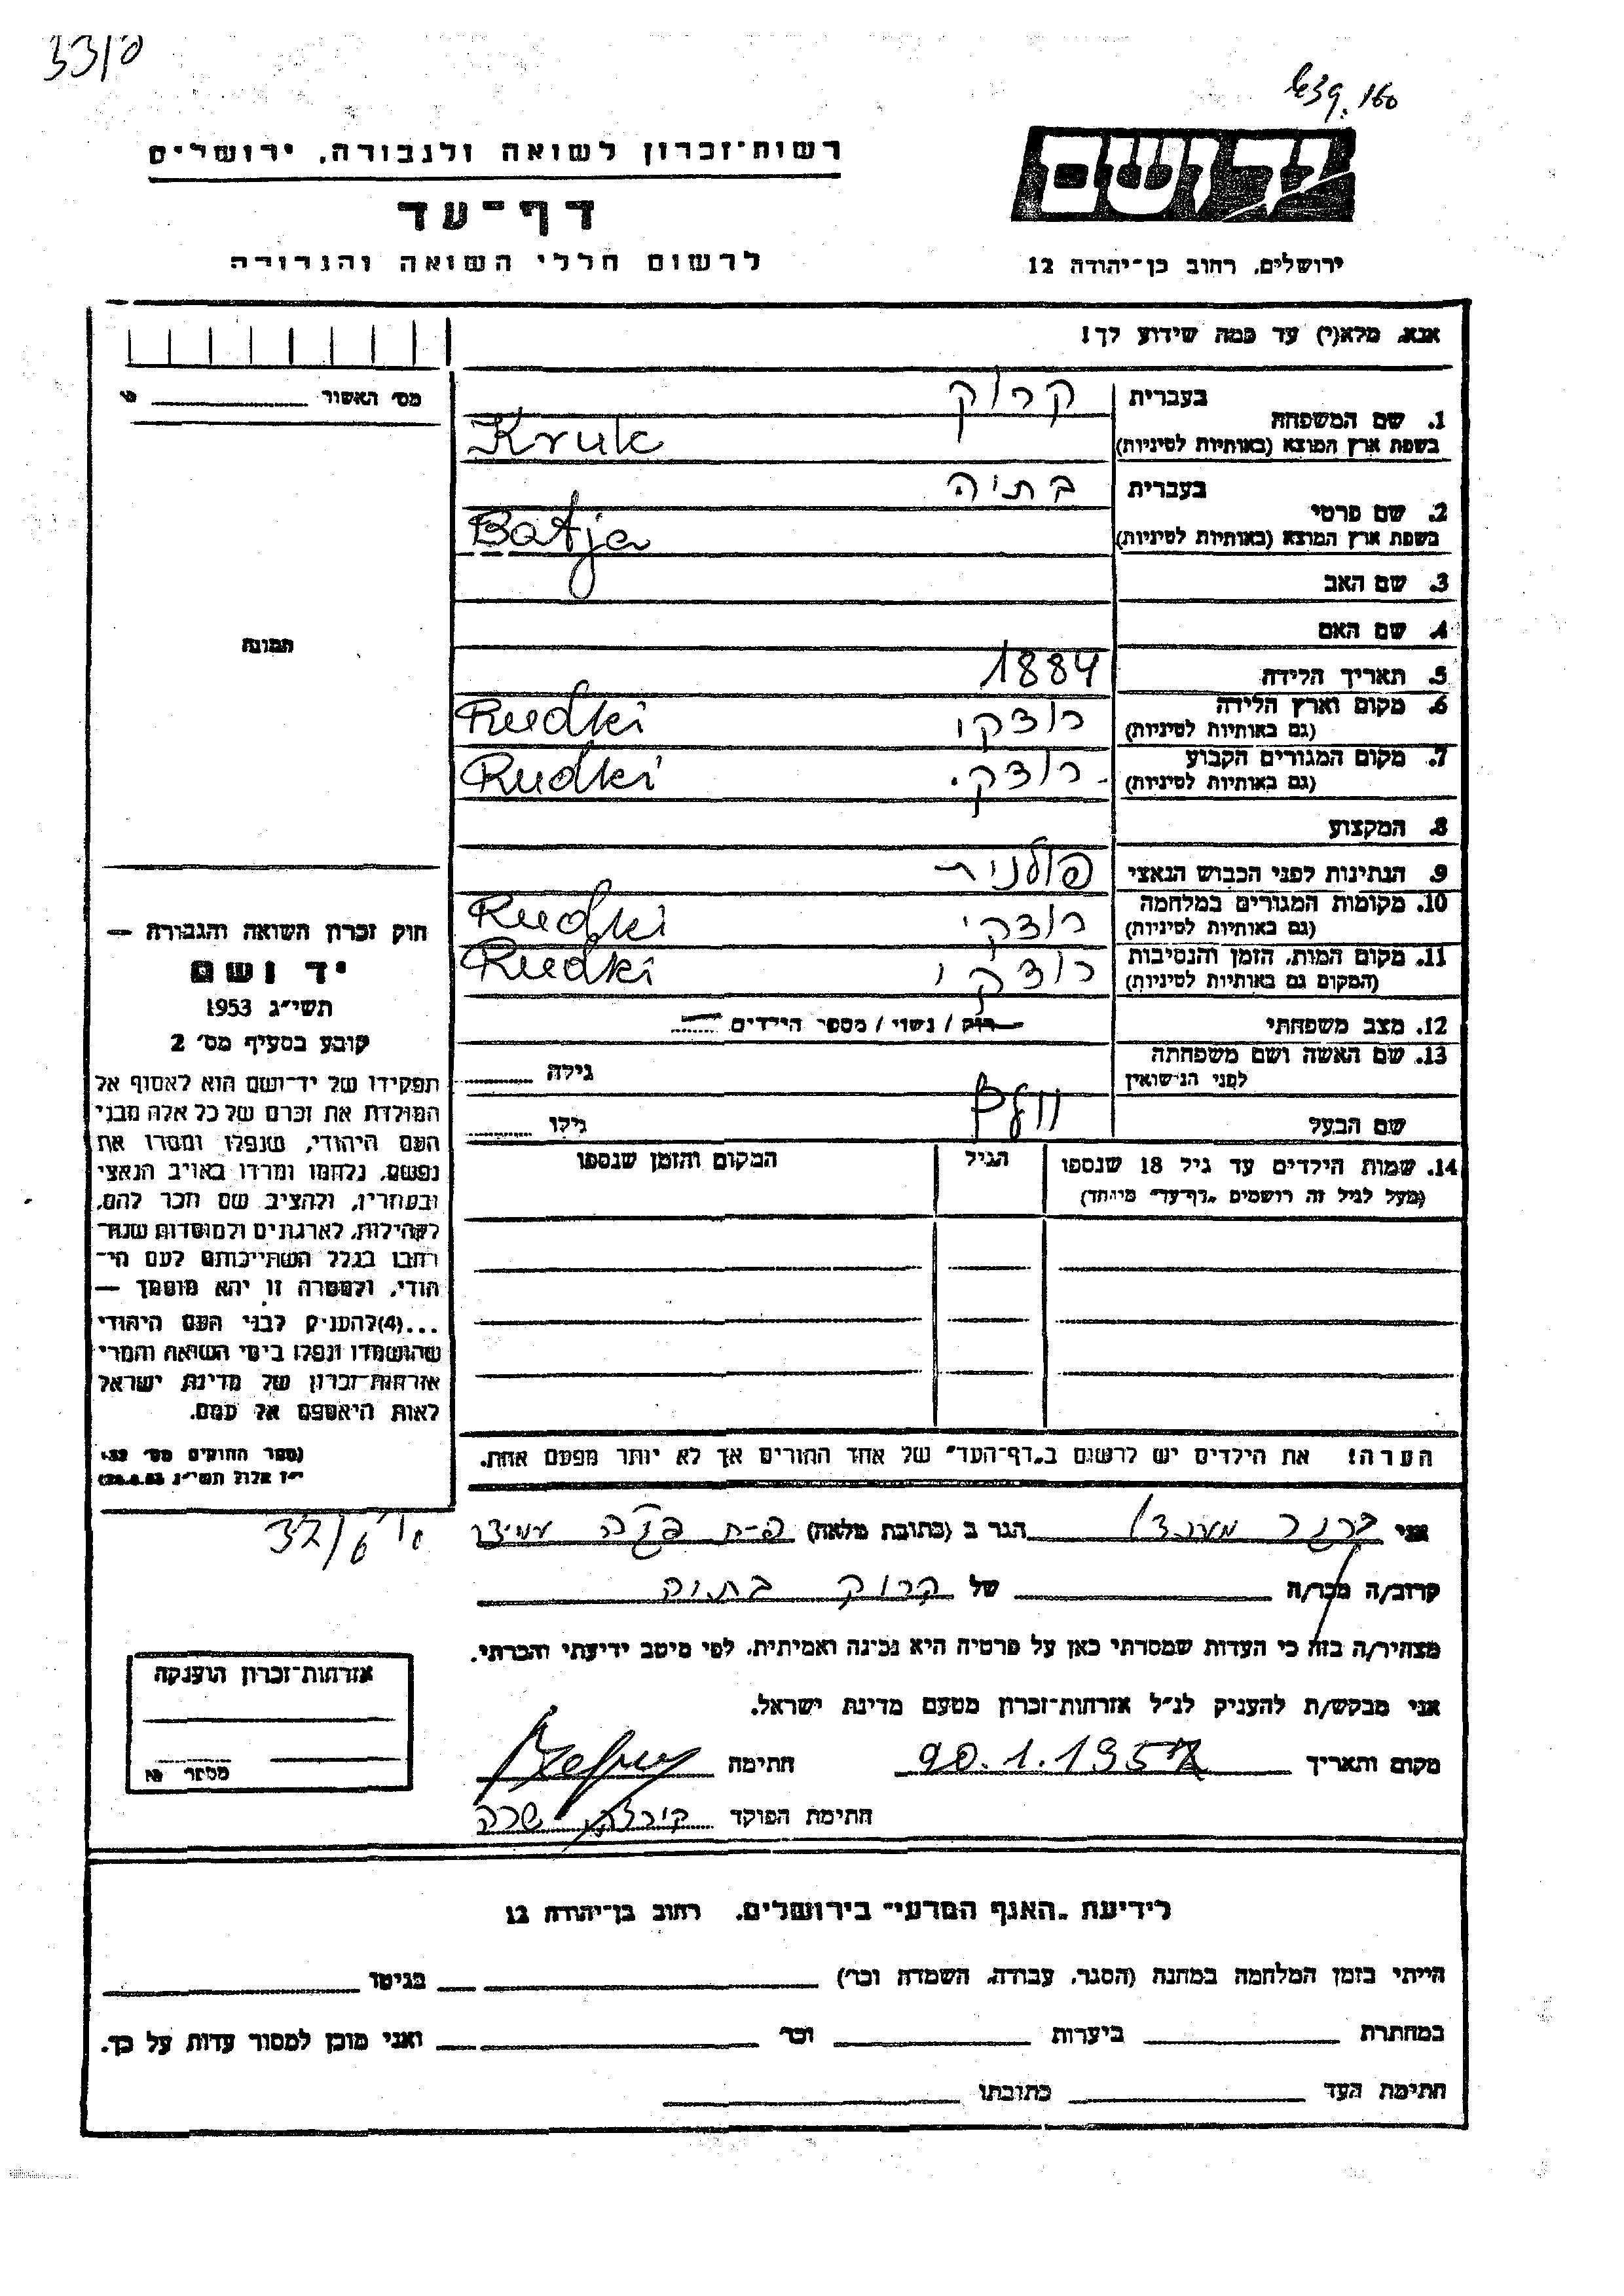 רשות־זכרון לשואה ולגבורה, ירושלים
דף־עד
לרשום חללי השואה והגבורה
יד ושם
ירושלים, רחוב בן־יהודה 12
אנא, מלא(י) עד כמה שידוע לך!
מס׳ האשור
בעברית קרוק
1. שם המשפחה
בשפת ארץ המוצא (באותיות לטיניות) Kruk
בעברית בתיה
2. שם פרטי
בשפת ארץ המוצא (באותיות לטיניות) Batja
3. שם האב
4. שם האם
5. תאריך הלידה 1884
6. מקום וארץ הלידה רודקי Rudki
(גם באותיות לטיניות)
7. מקום המגורים הקבוע רודקי Rudki
(גם באותיות לטיניות)
8. המקצוע
9. הנתינות לפני הכבוש הנאצי פולנית
10. מקומות המגורים במלחמה רודקי Rudki
(גם באותיות לטיניות)
11. מקום המות, הזמן והנסיבות רודקי Rudki
(המקום גם באותיות לטיניות)
12. מצב משפחתי רוק / נשוי / מספר הילדים
13. שם האשה ושם משפחתה גילה
לפני הנישואין
שם הבעל וולף גילו
14. שמות הילדים עד גיל 18 שנספו הגיל המקום והזמן שנספו
(מעל לגיל זה רושמים „דף־עד" מיוחד)
הערה! את הילדים יש לרשום ב„דף־העד" של אחד ההורים אך לא יותר מפעם אחת.
תמונה
חוק זכרון השואה והגבורה —
יד ושם
תשי״ג 1953
קובע בסעיף מס׳ 2
תפקידו של יד־ושם הוא לאסוף אל
המולדת את זכרם של כל אלה מבני
העם היהודי, שנפלו ומסרו את
נפשם, נלחמו ומרדו באויב הנאצי
ובעוזריו, ולהציב שם וזכר להם,
לקהילות, לארגונים ולמוסדות שנח־
רבו בגלל השתייכותם לעם הי־
הודי, ולמטרה זו יהא מוסמך —
...(4) להעניק לבני העם היהודי
שהושמדו ונפלו בימי השואה והמרי
אזרחות־זכרון של מדינת ישראל
לאות היאספם אל עמם.
(ספר החוקים מס׳ 132,
י״ז אלול תשי״ג 28.8.53)
אני הגר ב (כתובת מלאה)
קרוב/ה מכר/ה של קרוק בתיה
מצהיר/ה בזה כי העדות שמסרתי כאן על פרטיה היא נכונה ואמיתית, לפי מיטב ידיעתי והכרתי.
אני מבקש/ת להעניק לנ״ל אזרחות־זכרון מטעם מדינת ישראל.
מקום ותאריך חתימה
חתימת הפוקד שרה
אזרחות־זכרון הוענקה
מספר
לידיעת „האגף המדעי" בירושלים, רחוב בן־יהודה 12
הייתי בזמן המלחמה במחנה (הסגר, עבודה, השמדה וכו׳) בגיטו
במחתרת ביערות וכו׳ ואני מוכן למסור עדות על כך.
חתימת העד כתובתו